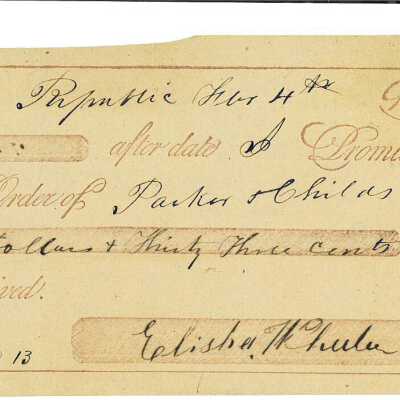 Republic Nov 4th
after date I Promi
Order of Parker & Childs
Dollars & Thirty Three cents
ived.
13 Elisha Wheeler